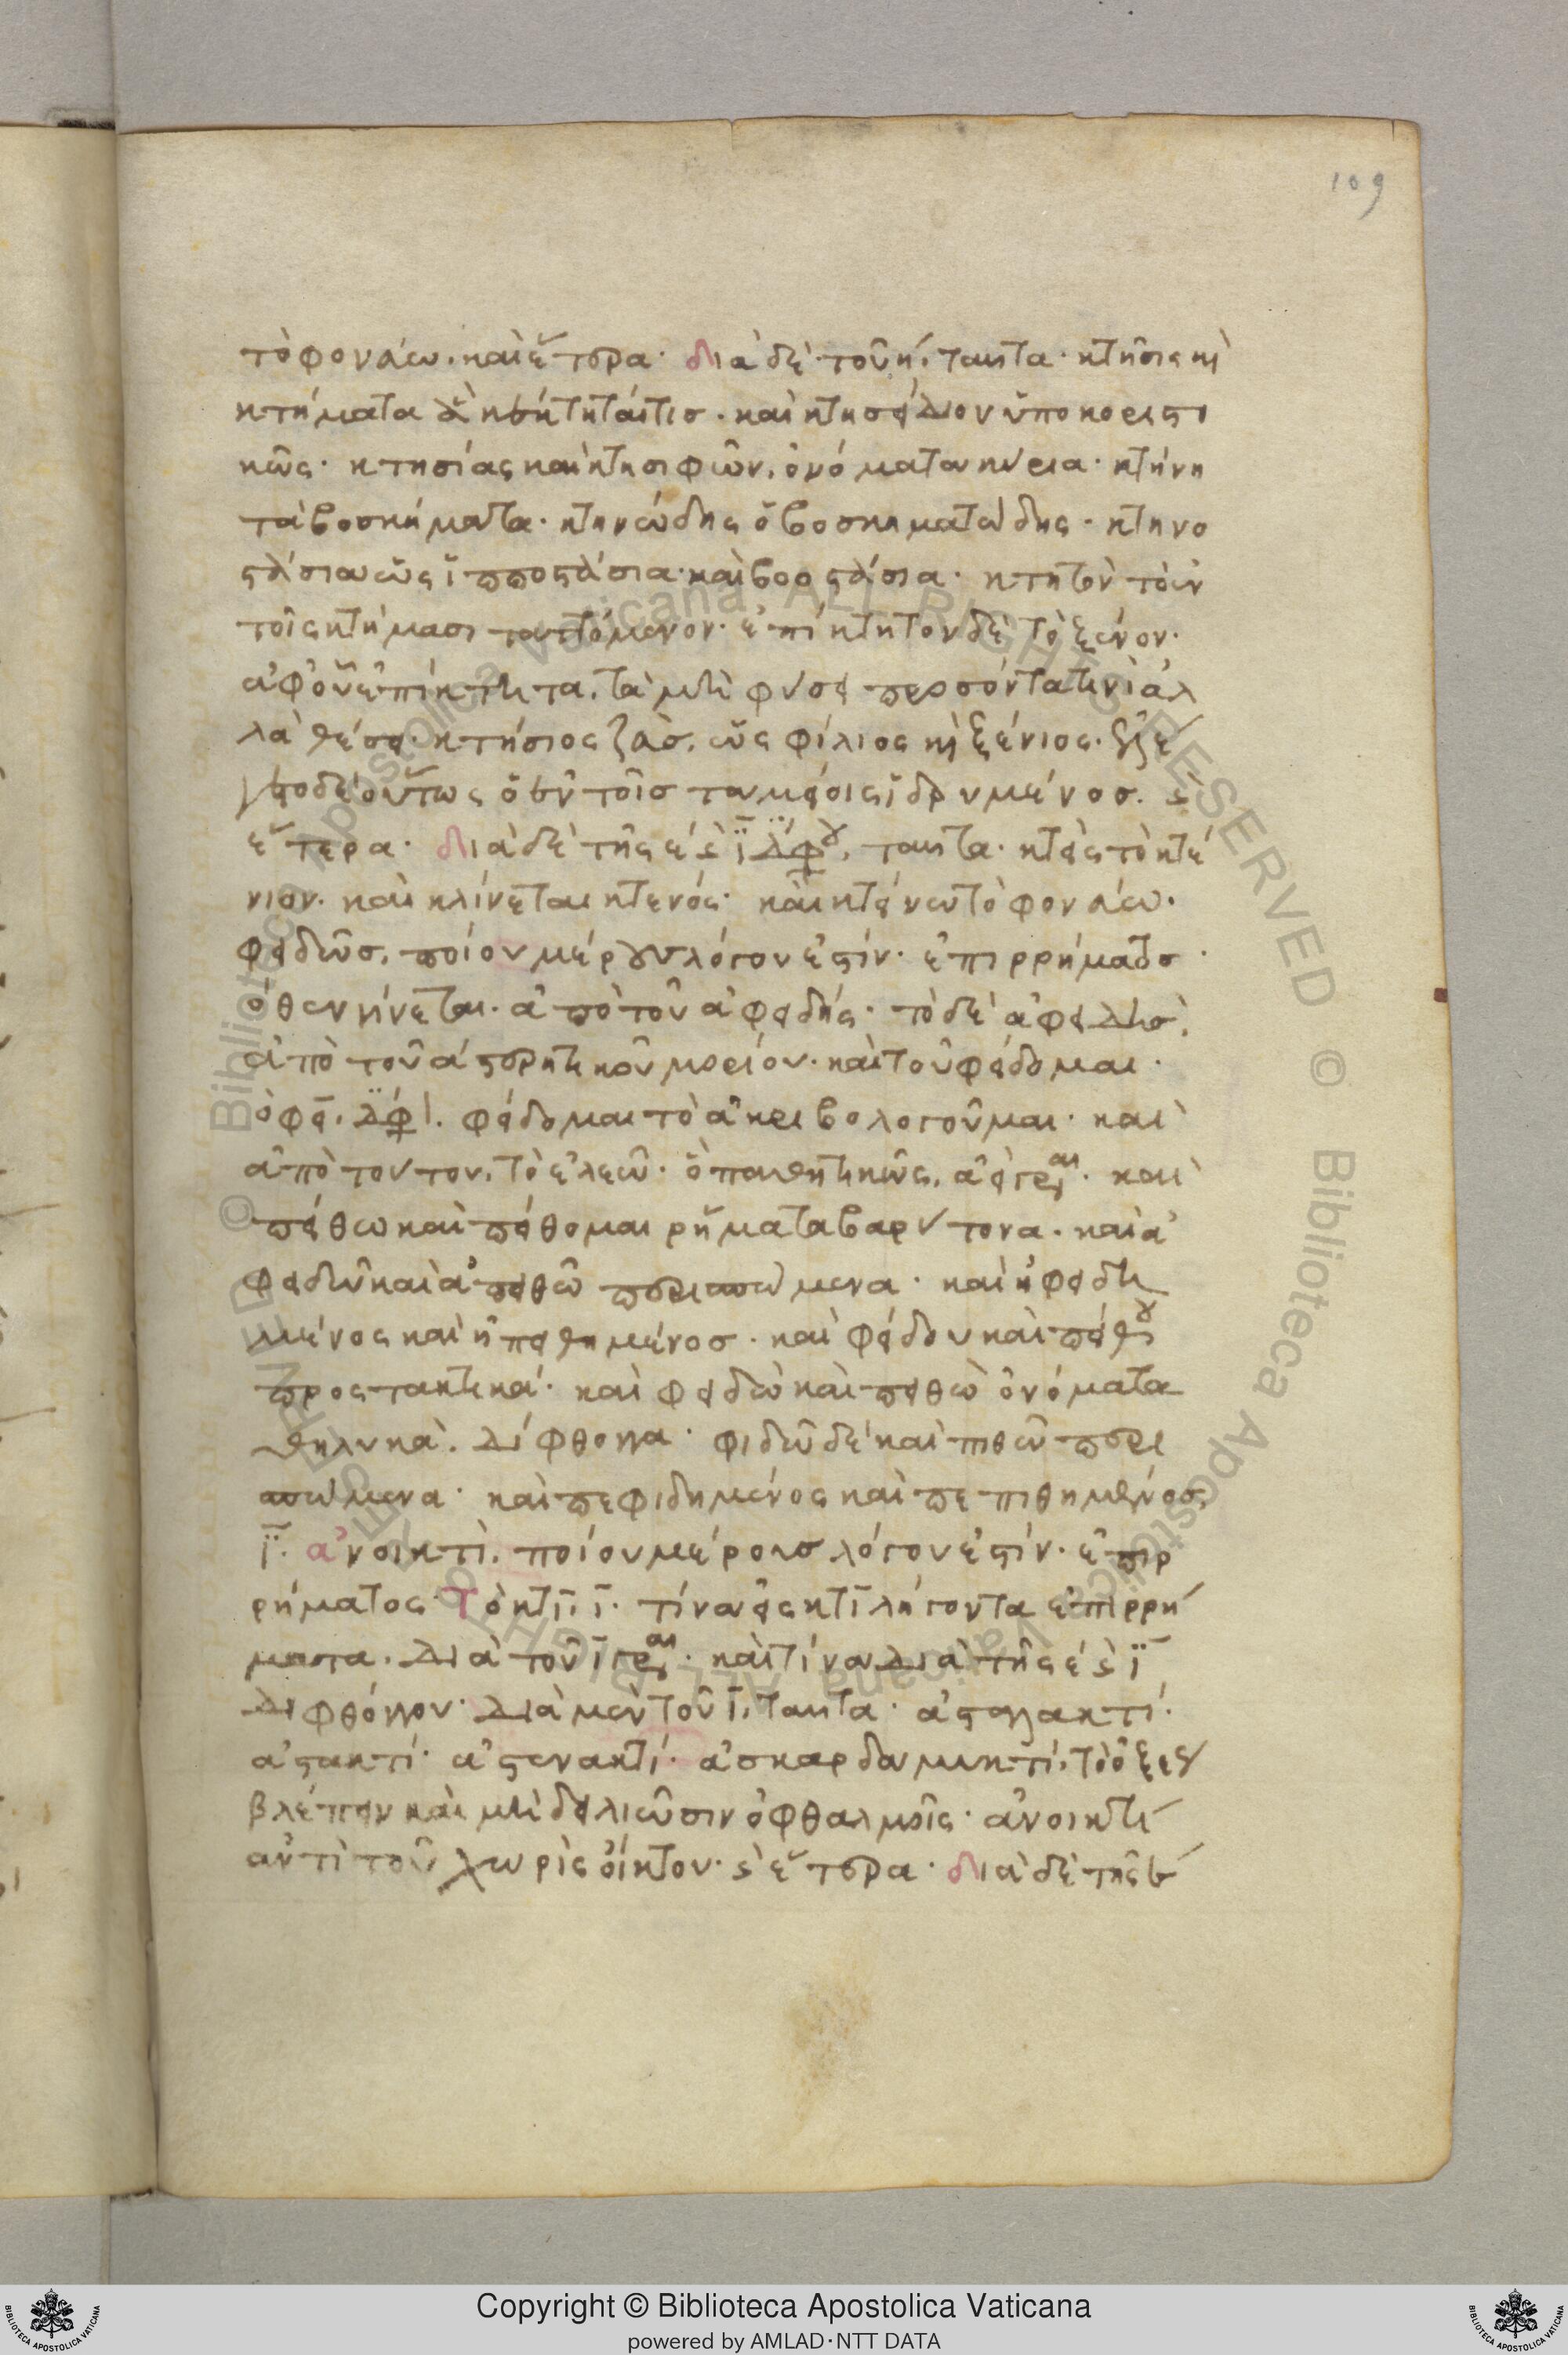 109
τὸ φονεύω. καὶ ἕτερα· διὰ δὲ τοῦ η, ταῦτα· κτῆσις καὶ
κτήματα ἃ κέκτηταί τισ. καὶ κτησείδιον ὑποκοριστι
κῶς· κτησίας καὶ κτησιφῶν, ὀνόματα κύρια· κτήνη
τὰ βοσκήματα· κτηνώδης ὁ βοσκηματώδης· κτηνο
στάσια ὡς ἱπποστάσια καὶ βοοστάσια· κτητὸν τὸ ἐν
τοῖς κτήμασι ταττόμενον· ἐπίκτητον δὲ τὸ ξένον.
ἀφ' οὗ ἐπίκτητα, τὰ μὴ φύσει προσόντα τινὶ ἀλ
λὰ θέσει· κτήσιος ζεὺσ, ὡς φίλιος καὶ ξένιος. ἐλέ
γετο δὲ οὕτως ὁ ἐν τοῖσ ταμείοις ἱδρυμένοσ. καὶ
ἕτερα· διὰ δὲ τῆς ε καὶ ϊ διφθόγγου, ταῦτα· κτεὶς τὸ κτέ
νιον. καὶ κλίνεται κτενός· καὶ κτείνω τὸ φονεύω.
φειδῶσ. ποῖου μέρουσ λόγου ἐστίν· ἐπιρρήματοσ
ὅθεν γίνεται. ἀπὸ τοῦ ἀφειδής· τὸ δὲ ἀφειδὴσ,
ἀπὸ τοῦ α στερητικοῦ μορίου. καὶ τοῦ φείδομαι.
ὁ φει. διφ. φείδομαι τὸ ἀκριβολογοῦμαι· καὶ
ἀπὸ τούτου, τὸ ἐλεῶ. ὃ παθητικῶς, ἀεὶ γράφεται. καὶ
πείθω καὶ πείθομαι ρήματα βαρύτονα. καὶ ἀ
φειδῶ καὶ ἀπειθῶ περισπώμενα. καὶ ἠφειδη
μένος καὶ ἠπειθημένοσ. καὶ φείδου καὶ πείθου
προστακτικά. καὶ φειδὼ καὶ πειθὼ ὀνόματα
θηλυκὰ. δίφθογγα· φιδῶ δὲ καὶ πιθῶ περι
σπώμενα· καὶ πεφιδημένος καὶ πεπιθημένοσ,
ϊ. ἀνοικτὶ. ποῖου μέρουσ λόγου ἐστίν. ἐπιρ
ρήματος τὸ κτι, ι. τίνα εἰς κτι λήγοντα ἐπιρρή
ματα. διὰ τοῦ ι γράφεται. καὶ τίνα διὰ τῆς ε καὶ ϊ
διφθόγγου· διὰ μὲν τοῦ ι, ταῦτα· ἀσταλακτί.
ἀστακτί· ἀστενακτί. ἀσκαρδαμυκτί. τὸ ὀξέως
βλέπειν καὶ μὴ δειλιῶσιν ὀφθαλμοῖς· ἀνοικτὶ
ἀντὶ τοῦ χωρὶς οἴκτου. καὶ ἕτερα· διὰ δὲ τῆς ε
Copyright © Biblioteca Apostolica Vaticana
powered by AMLAD·NTT DATA